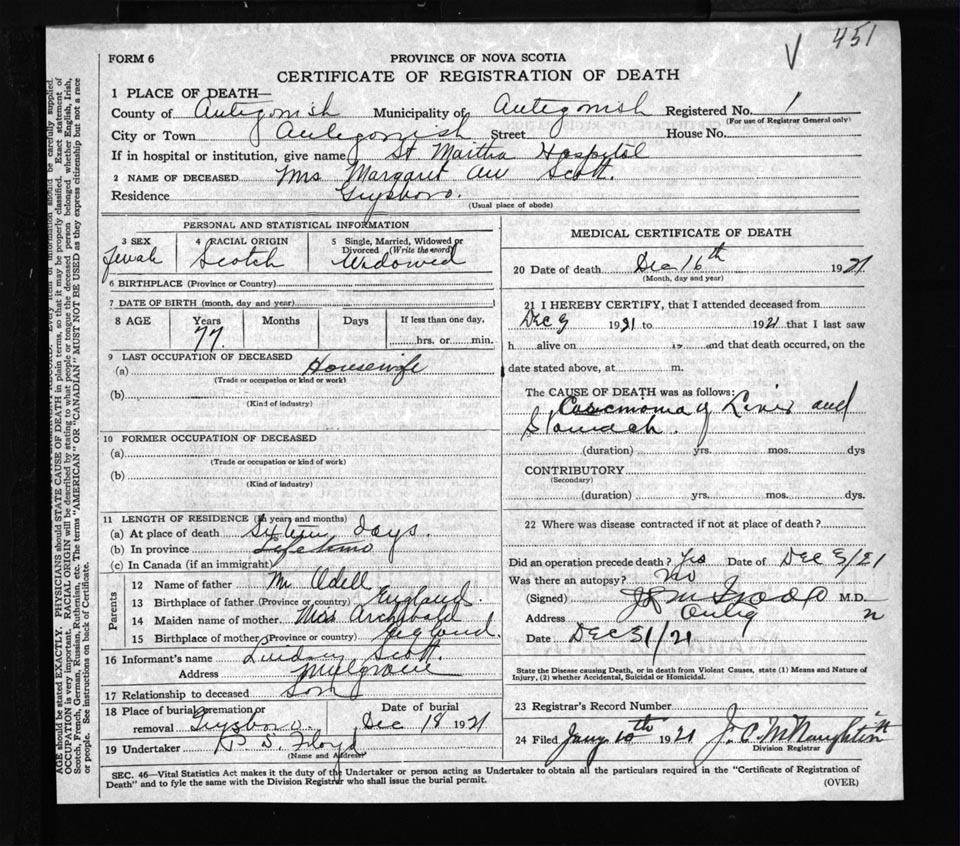 451
FORM 6
PROVINCE OF NOVA SCOTIA
CERTIFICATE OF REGISTRATION OF DEATH
1 PLACE OF DEATH—
County of Antigonish Municipality of Antigonish Registered No. 1
(For use of Registrar General only)
City or Town Antigonish Street House No.
If in hospital or institution, give name St Martha Hospital
2 NAME OF DECEASED Mrs Margaret Scott.
Residence Guysboro.
(Usual place of abode)
PERSONAL AND STATISTICAL INFORMATION
3 SEX 4 RACIAL ORIGIN 5 Single, Married, Widowed or Divorced (Write the word)
female Scotch Widowed
6 BIRTHPLACE (Province or Country)
7 DATE OF BIRTH (month, day and year)
8 AGE Years Months Days If less than one day,
77 hrs. or min.
9 LAST OCCUPATION OF DECEASED
(a) Housewife
(Trade or occupation or kind or work)
(b)
(Kind of industry)
10 FORMER OCCUPATION OF DECEASED
(a)
(Trade or occupation or kind of work)
(b)
(Kind of industry)
11 LENGTH OF RESIDENCE (in years and months)
(a) At place of death Sixteen days.
(b) In province Lifetime
(c) In Canada (if an immigrant)
Parents
12 Name of father Mr Udell
13 Birthplace of father (Province or country) England.
14 Maiden name of mother Miss Archibald
15 Birthplace of mother (Province or country) England.
16 Informant's name Lindsay Scott.
Address Mulgrave
17 Relationship to deceased Son
18 Place of burial, cremation or removal Guysboro. Date of burial Dec 18 1921
19 Undertaker Floyd
(Name and Address)
MEDICAL CERTIFICATE OF DEATH
20 Date of death Dec 16th 1921
(Month, day and year)
21 I HEREBY CERTIFY, that I attended deceased from
Dec 9 1921 to 1921 that I last saw
h alive on 19 and that death occurred, on the
date stated above, at m.
The CAUSE OF DEATH was as follows:
Carcinoma of Liver and
Stomach.
(duration) yrs. mos. dys
CONTRIBUTORY
(Secondary)
(duration) yrs. mos. dys.
22 Where was disease contracted if not at place of death?
Did an operation precede death? Yes Date of Dec 3/21
Was there an autopsy? No
(Signed) M.D.
Address Antig
Date Dec 31/21
State the Disease causing Death, or in death from Violent Causes, state (1) Means and Nature of
Injury, (2) whether Accidental, Suicidal or Homicidal.
23 Registrar's Record Number
24 Filed Jany 10th 1921 J. C. McNaughton
Division Registrar
SEC. 46—Vital Statistics Act makes it the duty of the Undertaker or person acting as Undertaker to obtain all the particulars required in the "Certificate of Registration of
Death" and to fyle the same with the Division Registrar who shall issue the burial permit.
(OVER)
AGE should be stated EXACTLY. PHYSICIANS should STATE CAUSE OF DEATH in plain terms, so that it may be properly classified. Exact statement of
OCCUPATION is very important. RACIAL ORIGIN will be described by stating to what people or tongue the deceased person belonged, whether English, Irish,
Scotch, French, German, Russian, Ruthenian, etc. The terms "AMERICAN" OR "CANADIAN" MUST NOT BE USED as they express citizenship but not a race
or people. See instructions on back of Certificate.